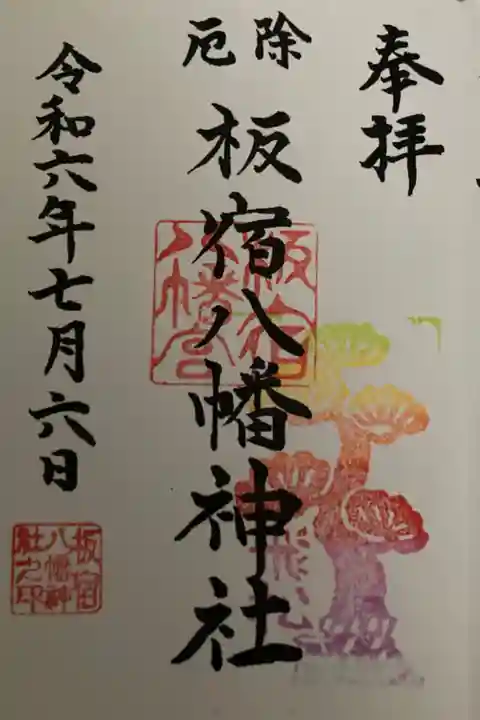 奉拝
厄除
板宿八幡神社
板宿
八幡宮
令和六年七月六日
板宿
八幡神
社之印